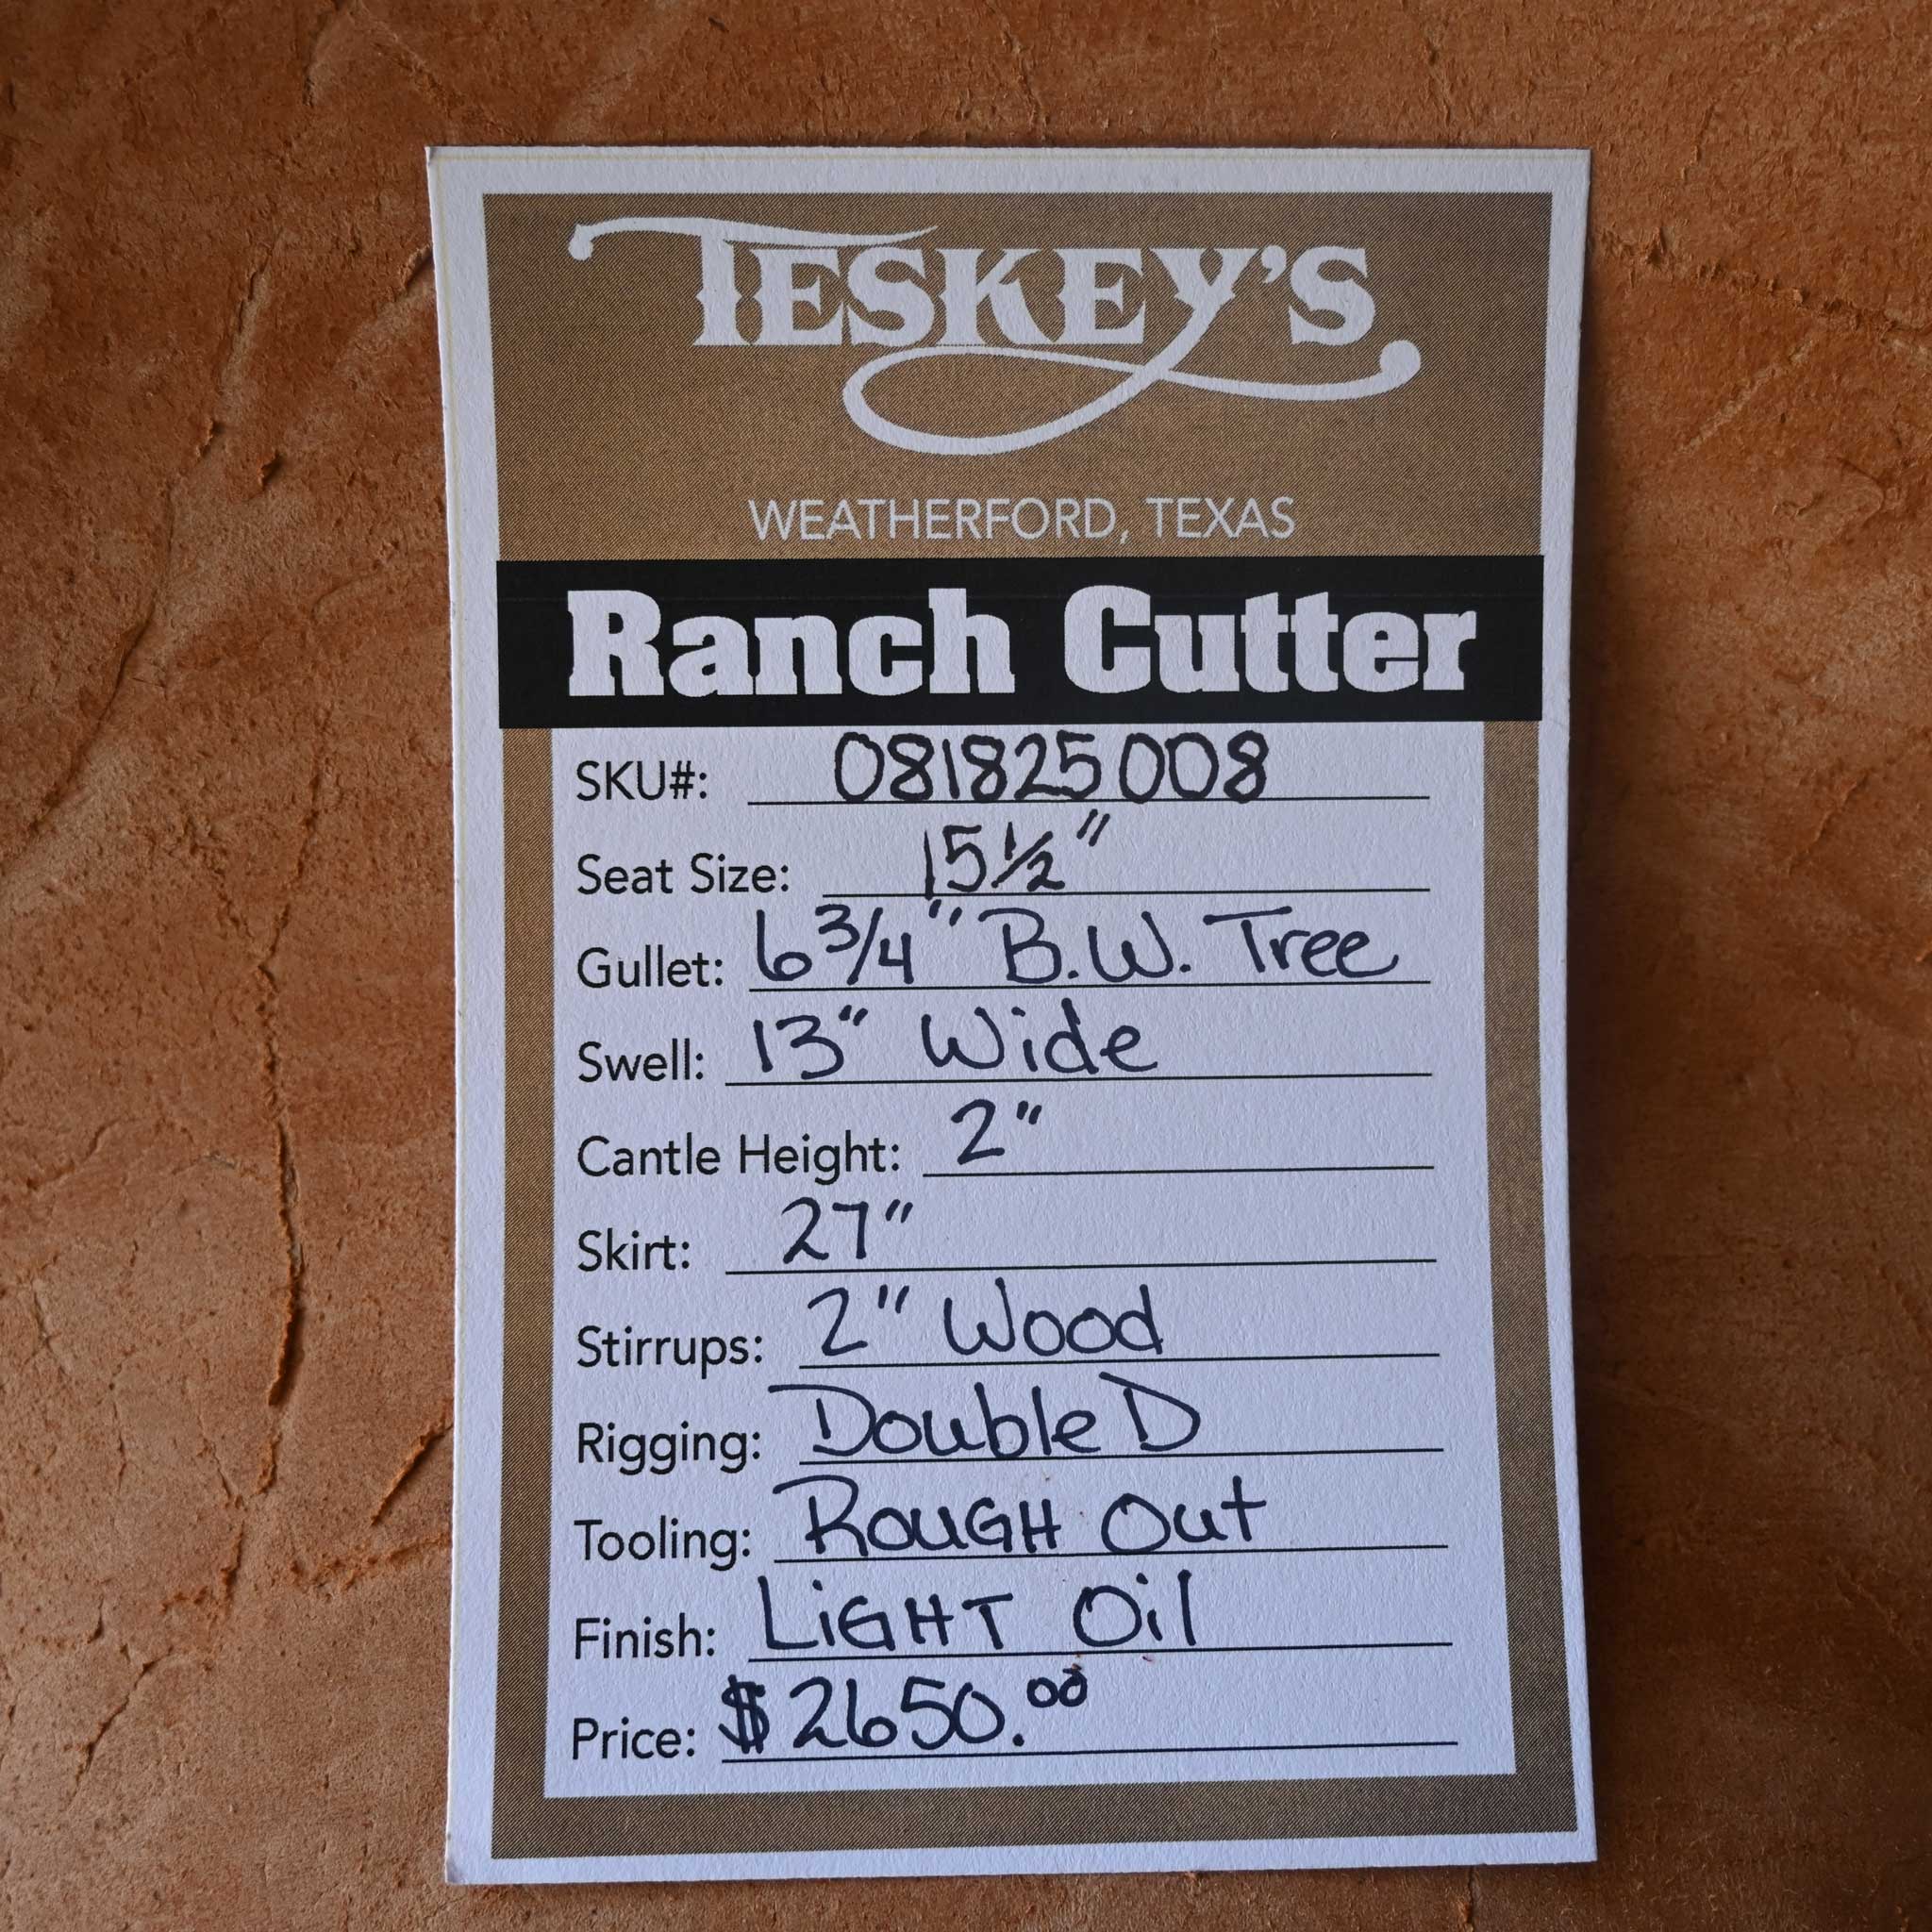 TESKEY'S
WEATHERFORD, TEXAS
Ranch Cutter
SKU#: 081825008
Seat Size: 15½"
Gullet: 6 3/4" B.W. Tree
Swell: 13" Wide
Cantle Height: 2"
Skirt: 27"
Stirrups: 2" Wood
Rigging: Double D
Tooling: ROUGH Out
Finish: LiGHT Oil
Price: $2650.00